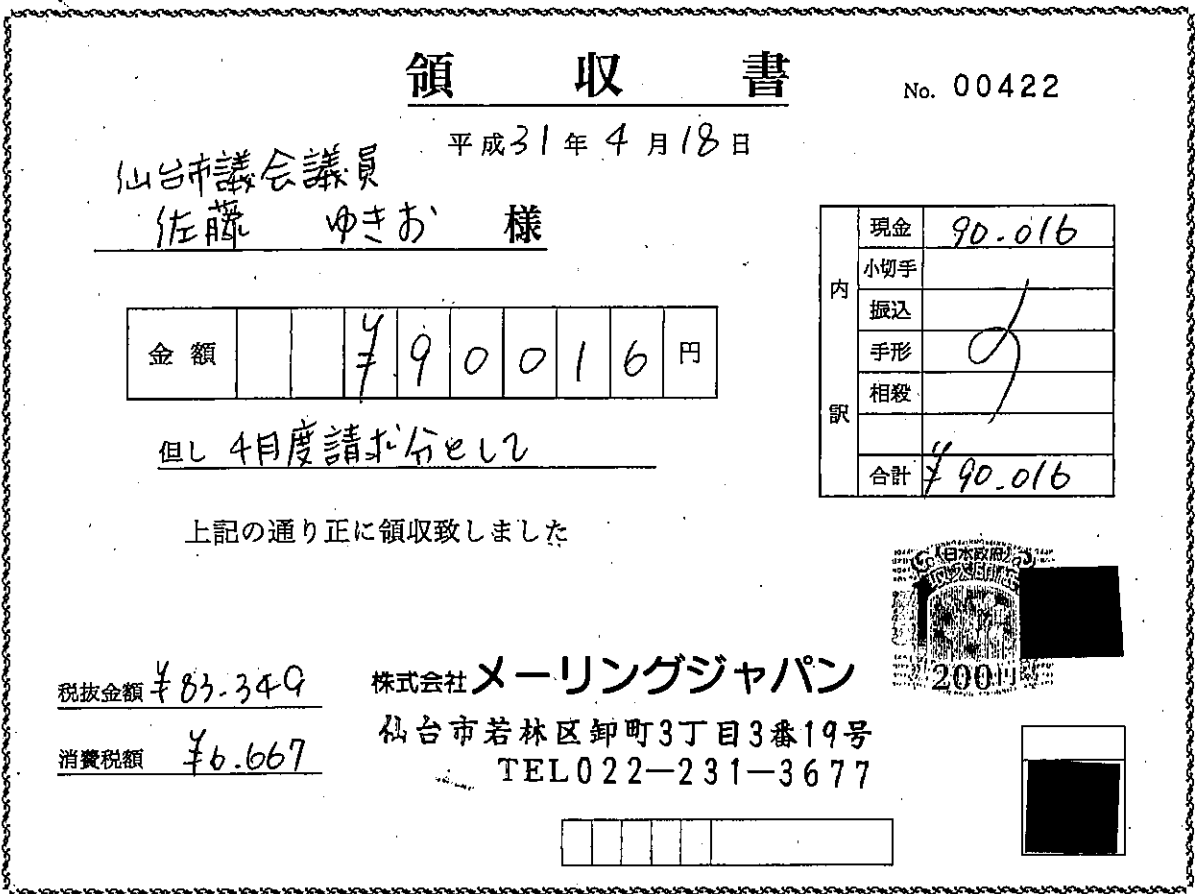 領収書
No. 00422
平成31年4月18日
仙台市議会議員
佐藤 ゆきお 様
金額 ¥90016円
但し 4月度請求分として
上記の通り正に領収致しました
内訳
現金 90.016
小切手
振込
手形
相殺
合計 ¥90.016
日本政府
200円
税抜金額 ¥83.349
消費税額 ¥6.667
株式会社メーリングジャパン
仙台市若林区卸町3丁目3番19号
TEL022-231-3677